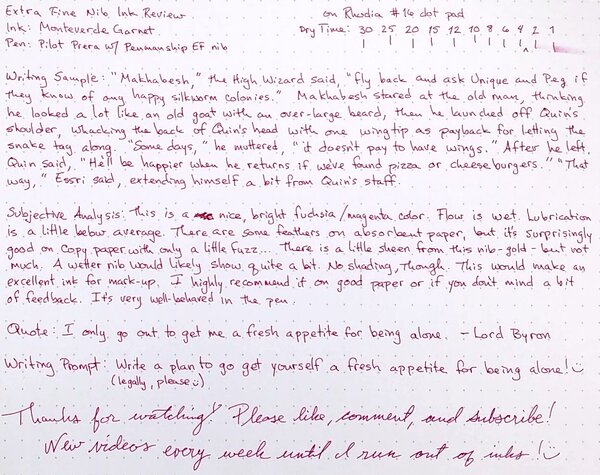 Extra Fine Nib Ink Review on Rhodia #16 dot pad
Ink: Monteverde Garnet Dry Time: 30 25 20 15 12 10 8 6 4 2 1
Pen: Pilot Prera w/ Penmanship EF nib
Writing Sample: "Makhabesh," the High Wizard said, "fly back and ask Unique and Peg if
they know of any happy silkworm colonies." Makhabesh stared at the old man, thinking
he looked a lot like an old goat with an over-large beard, then he launched off Quin's
shoulder, whacking the back of Quin's head with one wingtip as payback for letting the
snake tag along. "Some days," he muttered, "it doesn't pay to have wings." After he left,
Quin said, "He'll be happier when he returns if we've found pizza or cheeseburgers." "That
way," Essri said, extending himself a bit from Quin's staff.
Subjective Analysis: This is a nice, bright fuchsia/magenta color. Flow is wet. Lubrication
is a little below average. There are some feathers on absorbent paper, but it's surprisingly
good on copy paper with only a little fuzz... There is a little sheen from this nib-gold-but not
much. A wetter nib would likely show quite a bit. No shading, though. This would make an
excellent ink for mark-up. I highly recommend it on good paper or if you don't mind a bit
of feedback. It's very well-behaved in the pen.
Quote: I only go out to get me a fresh appetite for being alone. - Lord Byron
Writing Prompt: Write a plan to go get yourself a fresh appetite for being alone! :)
(legally, please :))
Thanks for watching! Please like, comment, and subscribe!
New videos every week until I run out of inks! :)